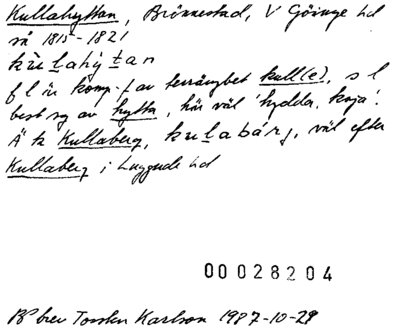 Kullahyttan, Brönnestad, V Göinge hd
så 1815-1821
kùlahỳtan
f l är komp. f av terrängbet kull(e), s l
best sg av hytta, här väl 'hydda, koja'.
Ä k Kullaberg, kulabárj, väl efter
Kullaberg i Luggude hd
00028204
brev Torsten Karlson 1987-10-29